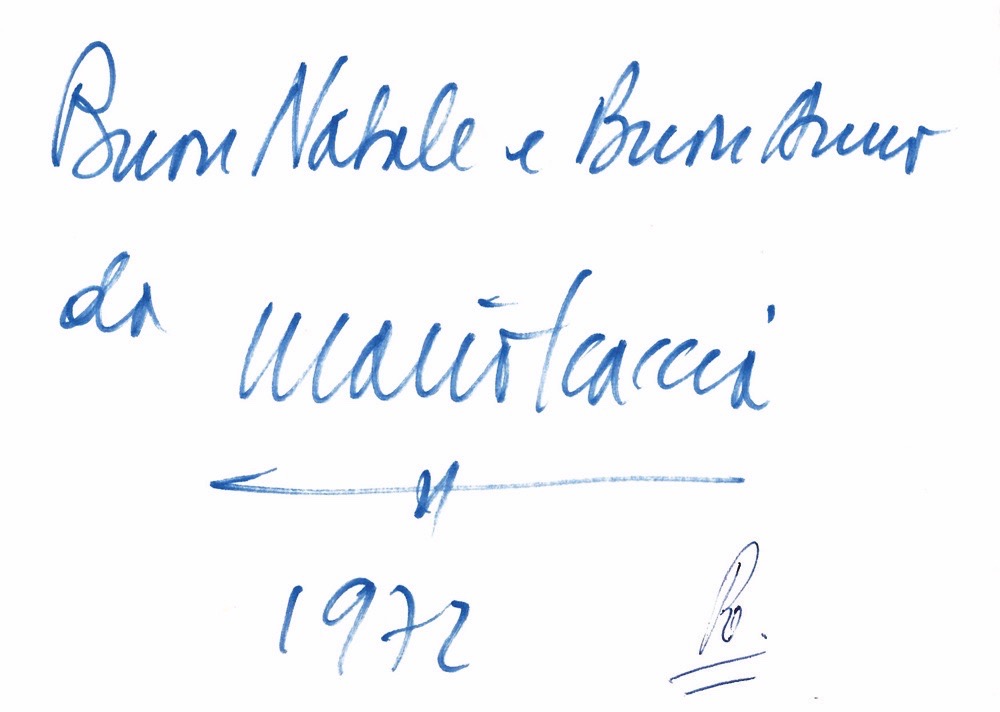 Buon Natale e Buon Anno
da
Mario Scaccia
1972